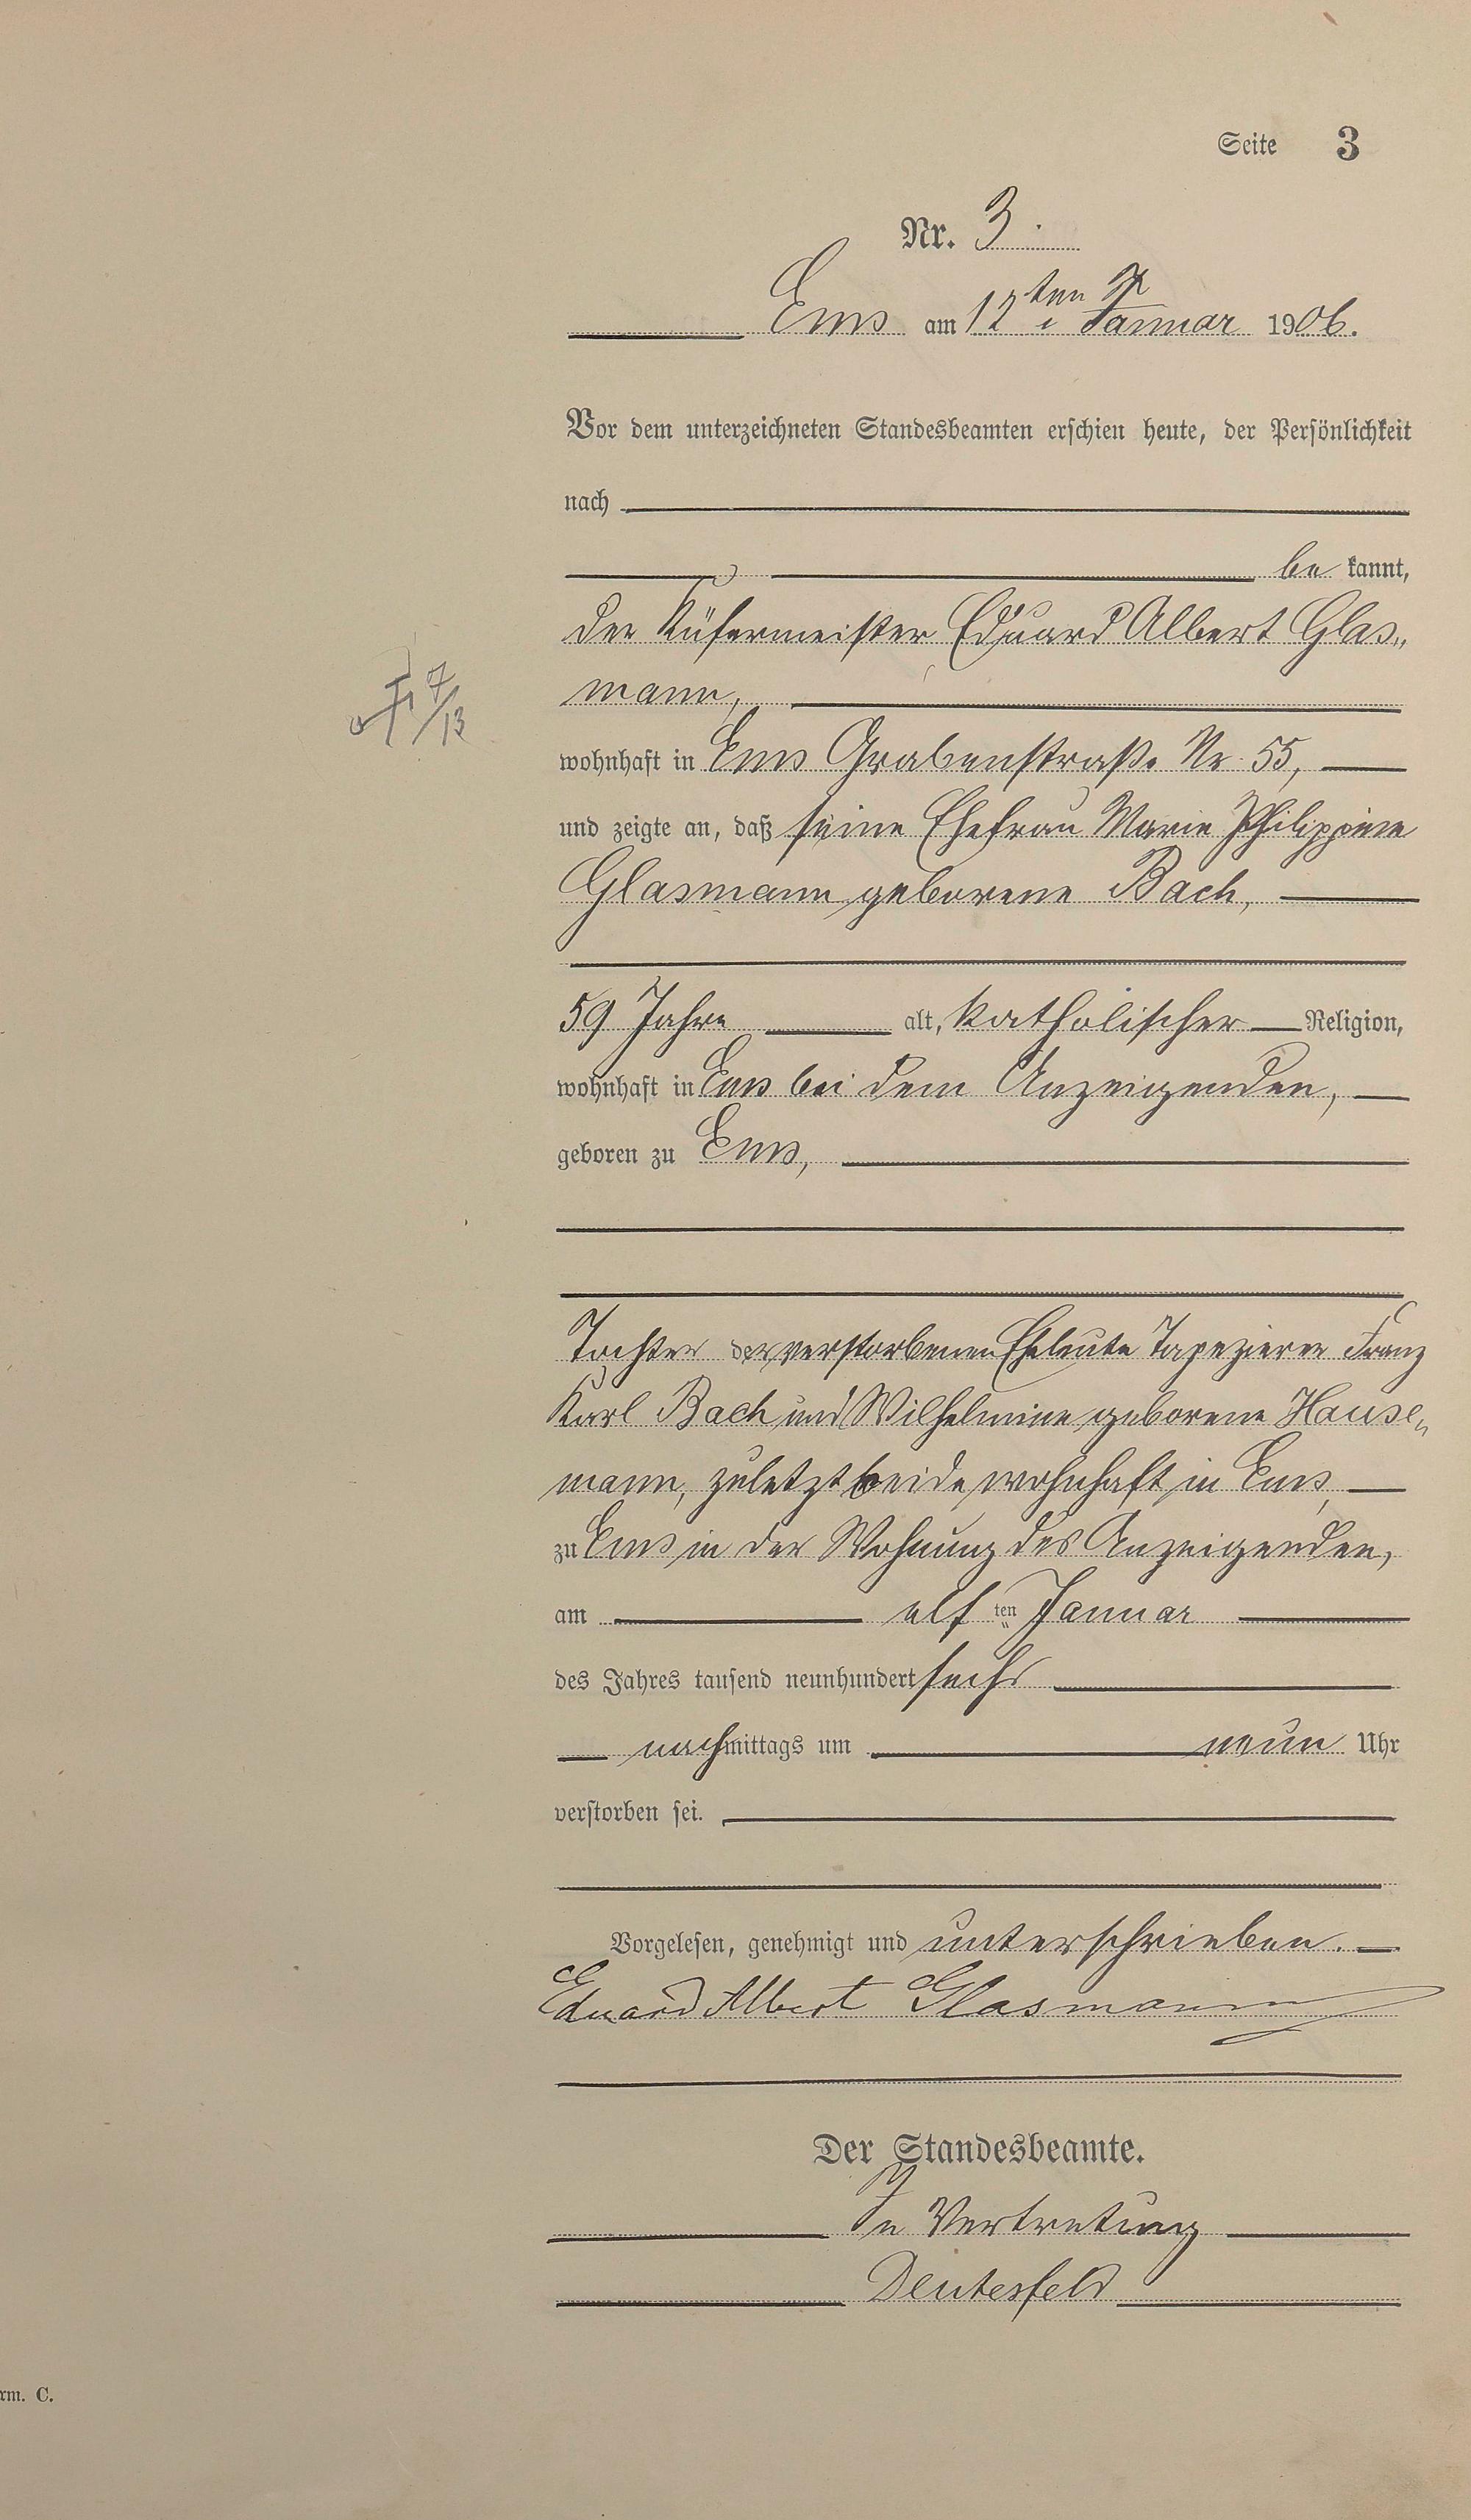 Seite 3
Nr. 3.
Ems am 12ten Januar 1906.
Vor dem unterzeichneten Standesbeamten erschien heute, der Persönlichkeit
nach
be kannt,
der Küfermeister Eduard Albert Glas„
mann,
wohnhaft in Ems Grabenstraße Nr. 55,
und zeigte an, daß seine Ehefrau Marie Philippine
Glasmann geborene Bach,
59 Jahre alt, katholischer Religion,
wohnhaft in Ems bei dem Anzeigenden,
geboren zu Ems,
Tochter der verstorbenen Eheleute Tapezierer Franz
Karl Bach und Wilhelmine geborene Hause„
mann, zuletzt beide wohnhaft in Ems
zu Ems in der Wohnung des Anzeigenden,
am elf ten Januar
des Jahres tausend neunhundert sechs
nachmittags um neun Uhr
verstorben sei.
Vorgelesen, genehmigt und unterschrieben.
Eduard Albert Glasmann
Der Standesbeamte.
In Vertretung
Deutesfeld
rm. C.